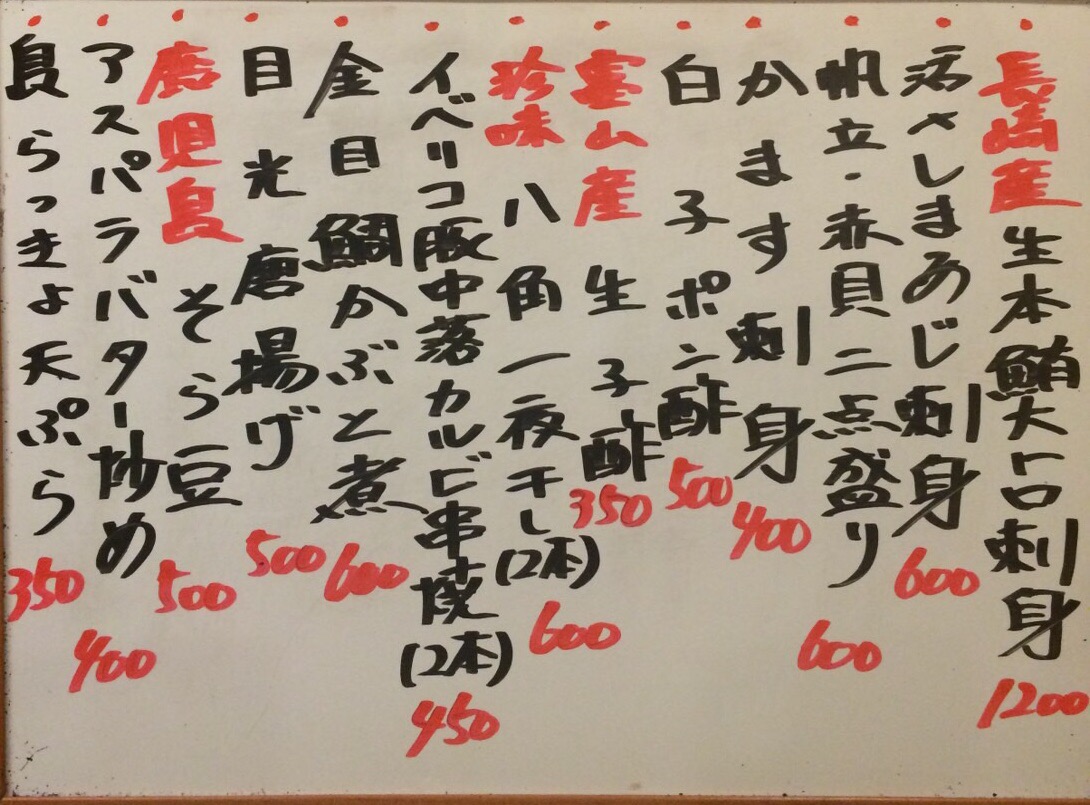 長崎産生本鮪大トロ刺身1200
活〆しまあじ刺身600
帆立・赤貝二点盛り600
かます刺身400
白子ポン酢500
富山産生子酢350
珍味八角一夜干し(2本)600
イベリコ豚中落カルビ串焼(2本)450
金目鯛かぶと煮600
目光唐揚げ500
鹿児島そら豆500
アスパラバター炒め400
島らっきょ天ぷら350